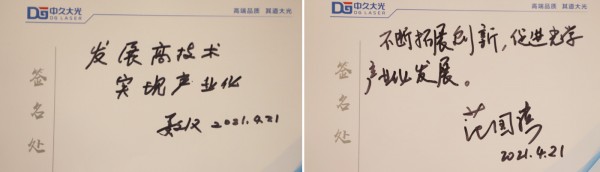 DG 中久大光
DG LASER
高端品质 其道大光
签名处
发展高技术
实现产业化
2021.4.21
DG 中久大光
DG LASER
高端品质 其道大光
签名处
不断拓展创新,促进光学
产业化发展。
范国滨
2021.4.21